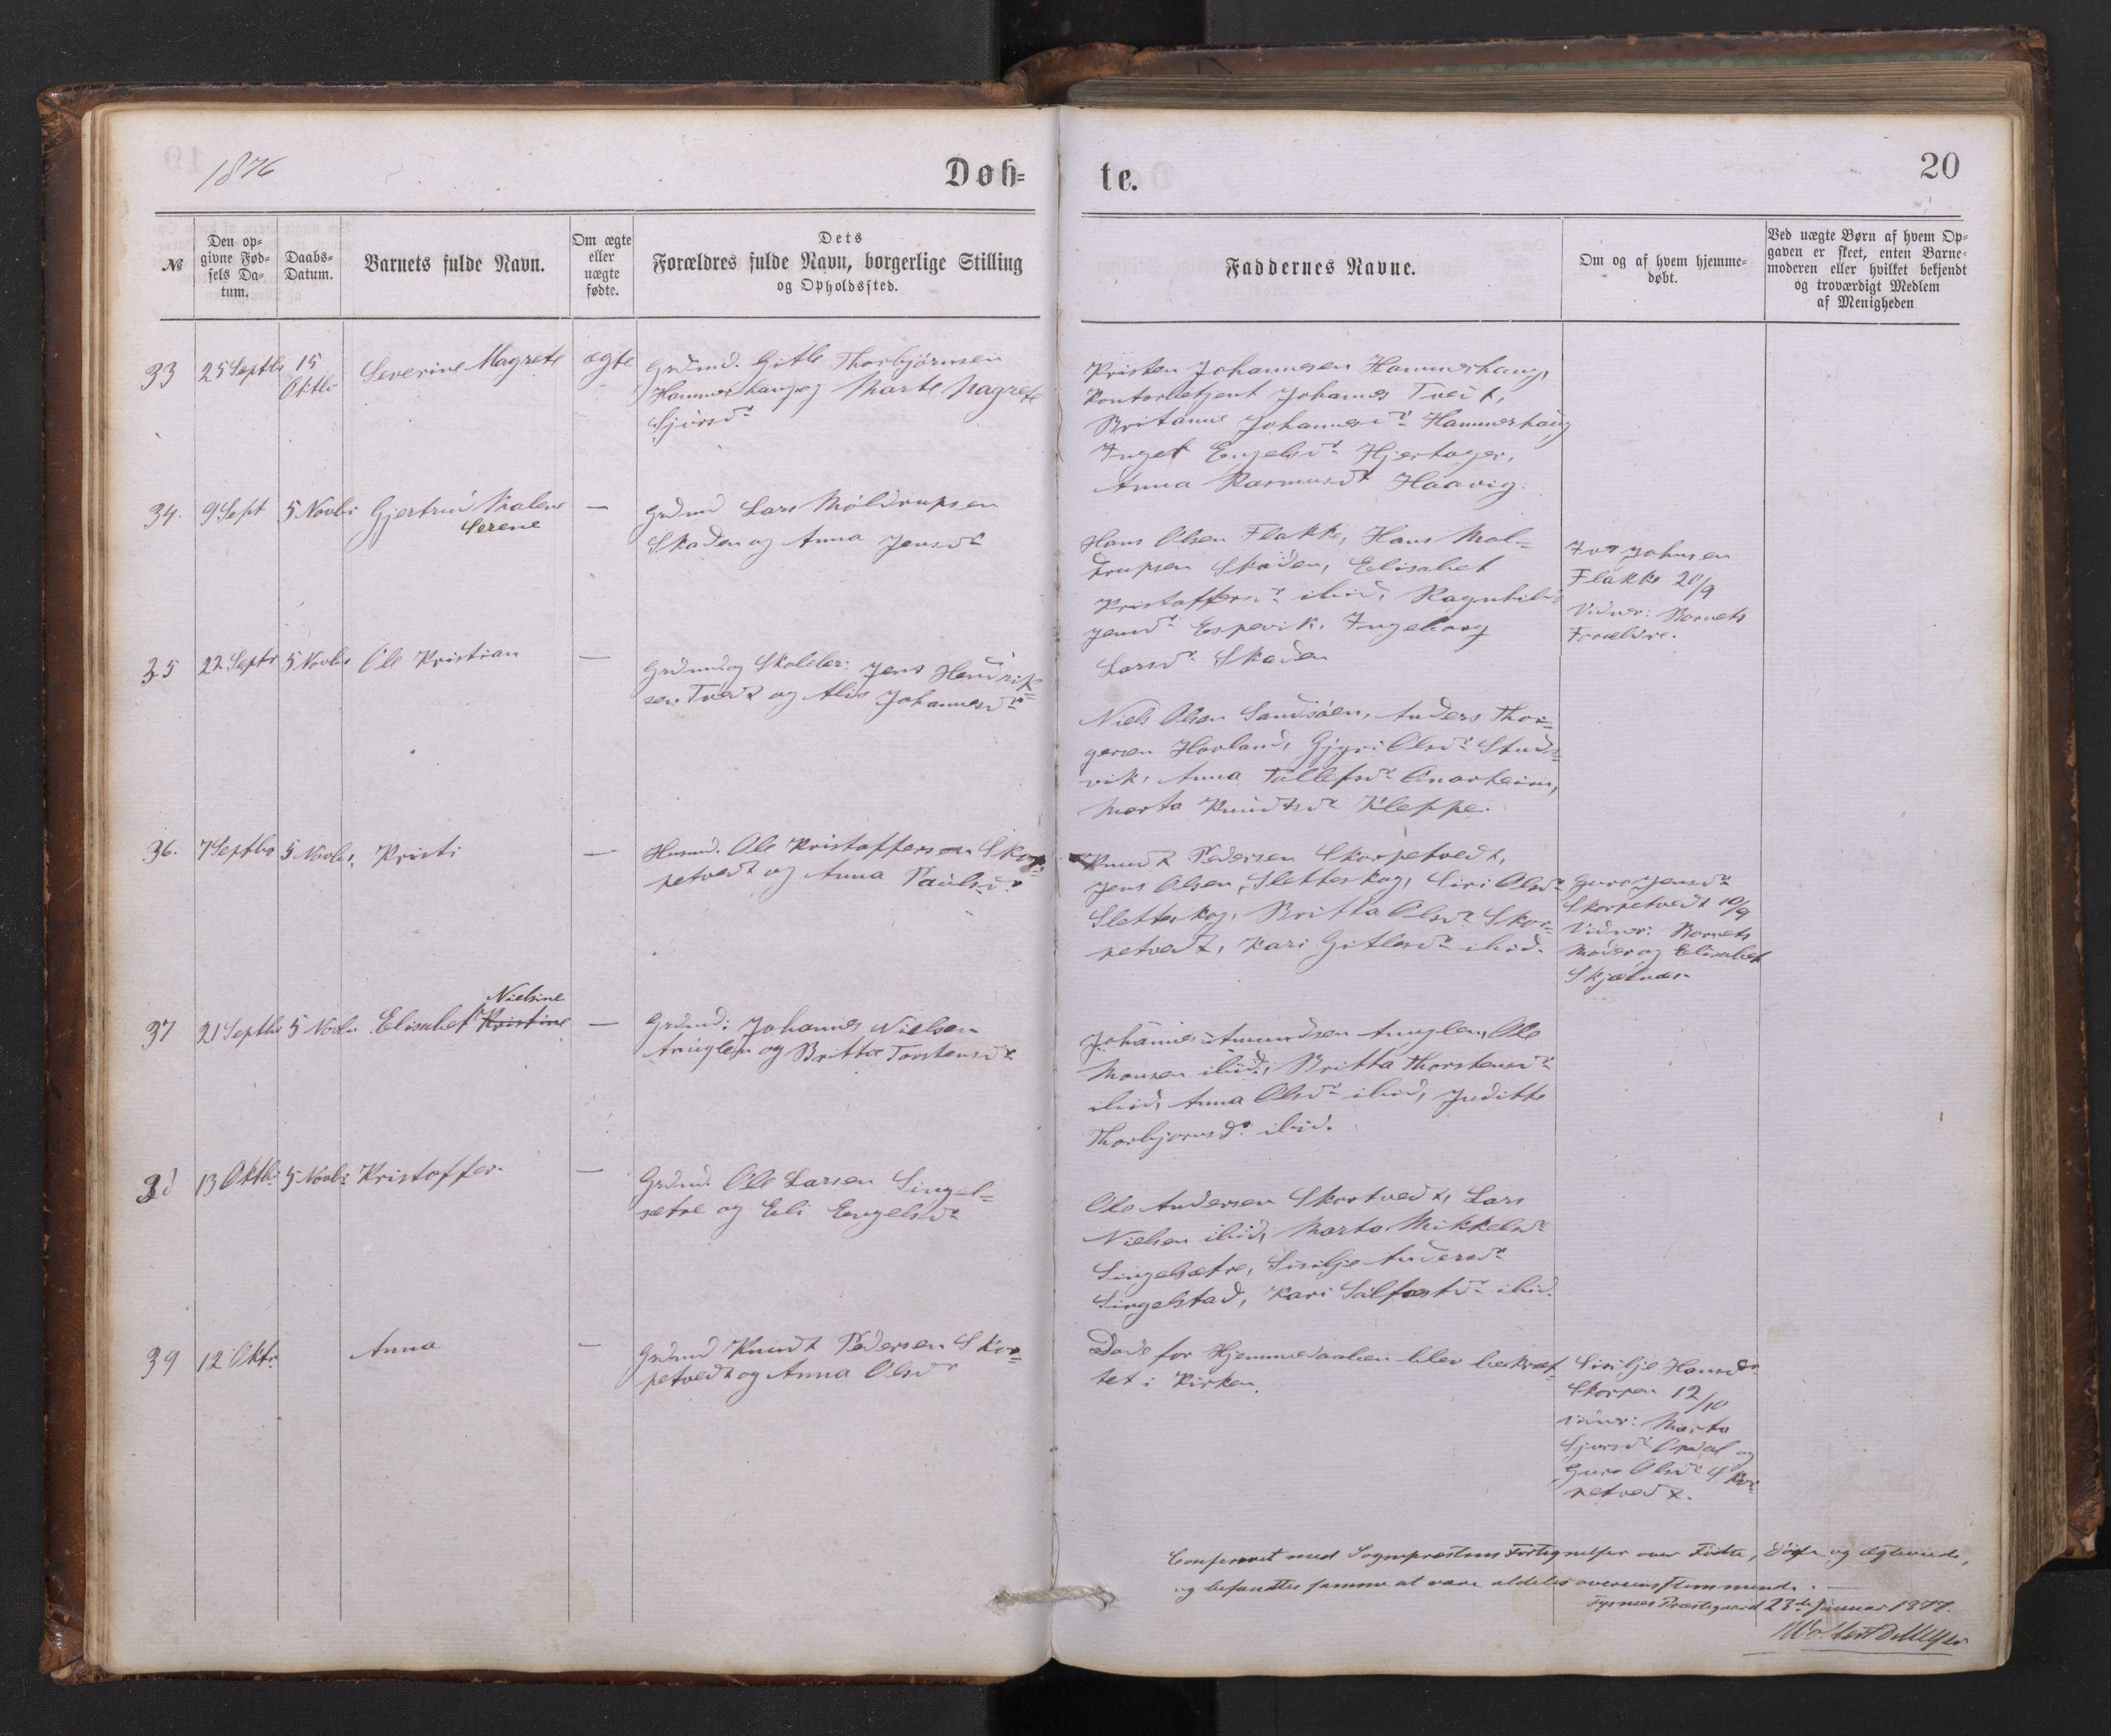 1876
Døb=
te.
20
№
Den op=
givne Fød=
sels Da=
tum.
Daabs=
Datum.
Barnets fulde Navn.
Om ægte
eller
uægte
fødte.
Dets
Forældres fulde Navn, borgerlige Stilling
og Opholdssted.
Faddernes Navne.
Om og af hvem hjemme=
døbt.
Ved uægte Børn af hvem Op=
gaven er skeet, enten Barne=
moderen eller hvilket bekjendt
og troværdigt Medlem
af Menigheden
33
25 Septbr
15
Oktbr
Severine Magrete
ægte
Grdmd. Gitle Thorbjørnsen
Hammerhaug og Marte Magrete
Sjursdr
Kristen Johannesen Hammerhaug,
Kontorbetjent Johannes Tveit,
Britanne Johannesdr Hammerhaug
Inget Engelsdr Hjertager,
Anna Rasmusdr Haavig.
34.
9 Sept
5 Novbr
Gjertrud Malene
Serene
—
Grdmd Lars Moldrupsen
Skaden og Anna Jensdr
Hans Olsen Flakke, Hans Mol=
drupsen Skaden, Elisabet
Kristoffersdr ibid, Ragnhild
Jensdr Espevik, Ingeborg
Larsdr Skaden
Johnsen
Flakke 20/9
Vidner: Barnets
Forældre.
35
22 Septr
5 Novbr
Ole Kristian
—
Grdmd og Skoleler: Jens Hendrik=
sen Tvedt og Alis Johannesdr
Niels Olsen Sandsøen, Anders Thor=
gersen Hovland, Gjyri Olsdr Studs=
vik, Anna Tollefsdr Onarheim,
Marta Knudtsdr Kleppe.
36.
7 Septbr
5 Novbr,
Kristi
—
Husmd. Ole Kristoffersen Skor=
petvedt og Anna Paulsdr
Knudt Pedersen Skorpetvedt,
Jens Olsen, Sletteskog, Siri Olsdr
Sletteskog, Britta Olsdr Skor=
petvedt, Kari Gitlesdr ibid.
Guro Jensdr
Skorpetvedt 10/9
Vidner: Barnets
Moder og Elisabet
Skjælnes
37
21 Septbr
5 Novbr
Nielsine
Elisabet Kristine
—
Grdmd: Johannes Nielsen
Anuglen og Britta Torstensdr
Johannes Amundsen Anuglen, Ole
Monsen ibid, Britta Thorstensdr
ibid, Anna Olsdr ibid, Juditte
Thorbjørnsdr ibid.
38
13 Oktbr
5 Novbr
Kristoffer
—
Grdmd. Ole Larsen Singel=
sætre og Eli Engelsdr
Ole Andersen Skortvedt, Lars
Nielsen ibid, Marta Mikkelsdr
Singelsætre, Sisilje Andersdr
Singelstad, Kari Salfæstdr ibid.
39
12 Oktr
Anna
—
Grdmd Knudt Pedersen Skor=
petvedt og Anna Olsdr
Døde før Hjemmedaaben blev bekræf=
tet i Kirken.
Sisilje Hansdr
Skorpen 12/10
Vidner: Marta
Sjursdr Opdal og
Guro Olsdr Skor=
petvedt.
Confereret med Sognepræstens Fortegnelser over Fødte, Døde og Ægteviede,
og befandtes samme at være aldeles overeensstemmende. —
Tysnæs Præstegaard 23de Januar 1877.